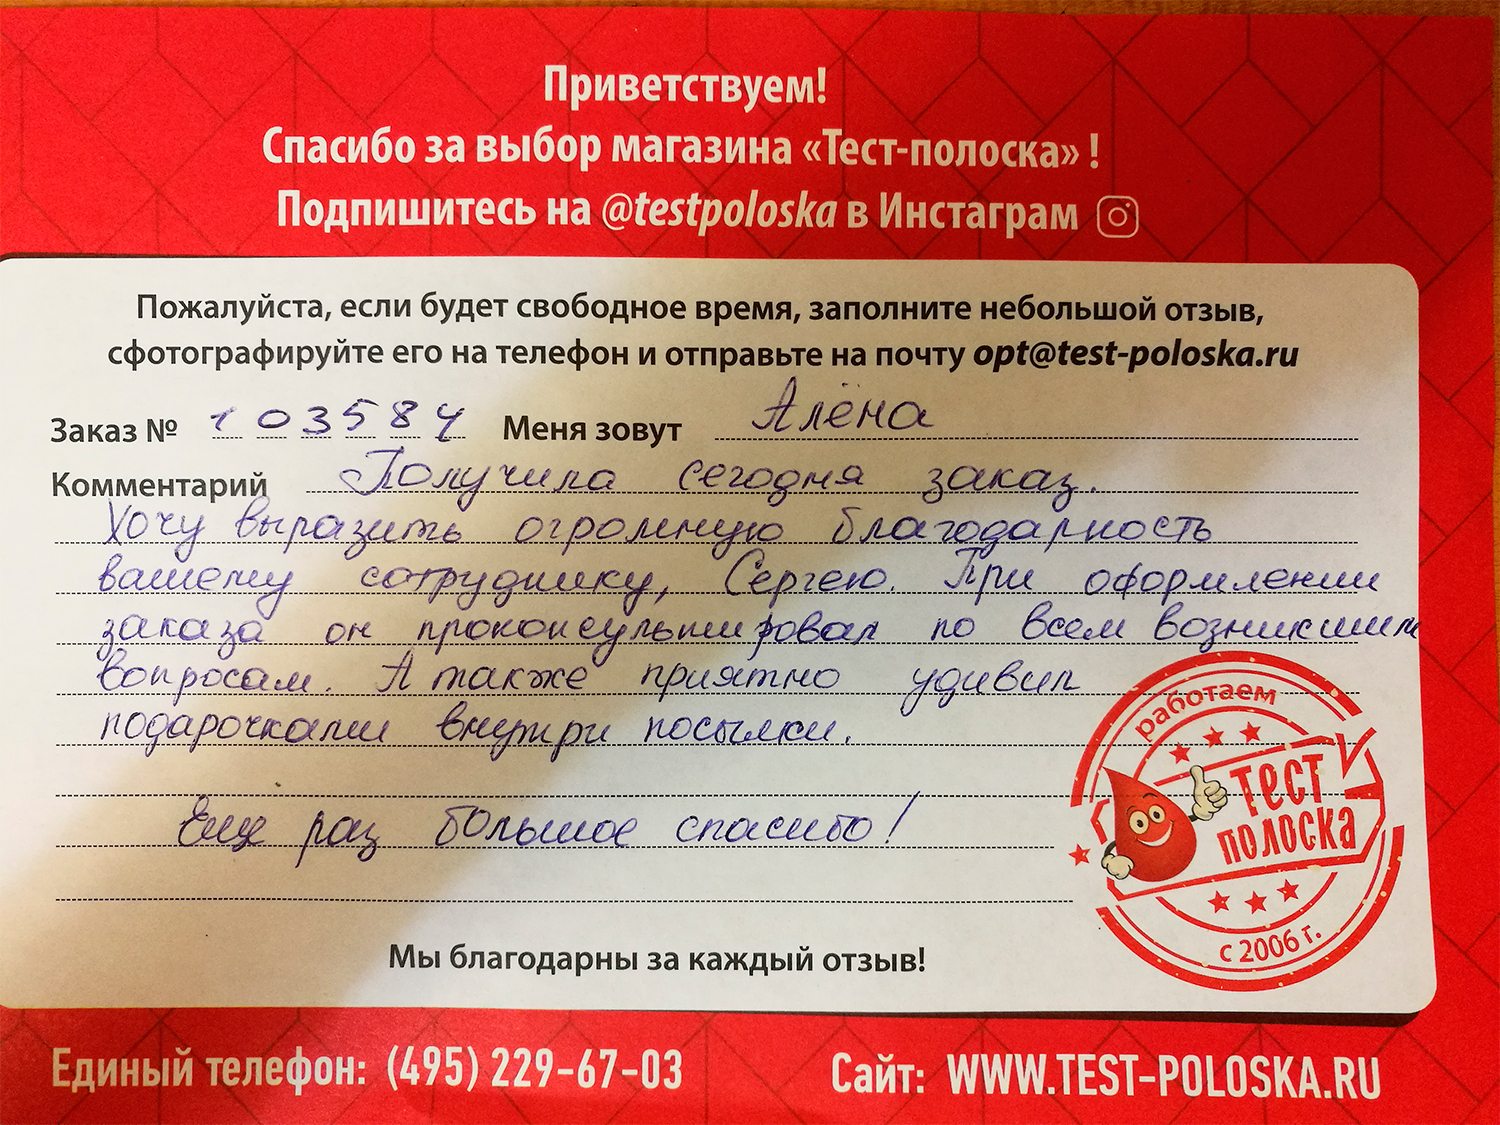 Приветствуем!
Спасибо за выбор магазина «Тест-полоска» !
Подпишитесь на @testpoloska в Инстаграм
Пожалуйста, если будет свободное время, заполните небольшой отзыв,
сфотографируйте его на телефон и отправьте на почту opt@test-poloska.ru
Заказ № 103584 Меня зовут Алёна
Комментарий Получила сегодня заказ.
Хочу выразить огромную благодарность
вашему сотруднику, Сергею. При оформлении
заказа он проконсультировал по всем возникшим
вопросам. А также приятно удивил
подарочками внутри посылки.
Еще раз большое спасибо!
работаем
Тест
полоска
с 2006 г.
Мы благодарны за каждый отзыв!
Единый телефон: (495) 229-67-03 Сайт: WWW.TEST-POLOSKA.RU